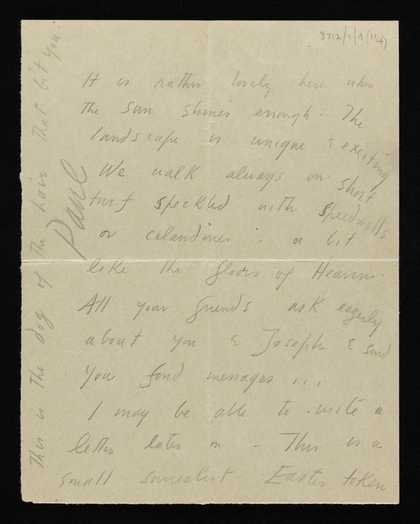 8712/1/9/(14)
It is rather lovely here when
the sun shines enough. The
landscape is unique & exciting
We walk always on short
turf speckled with speedwells
or celandines : a bit
like the floors of Heaven.
All your friends ask eagerly
about you & Joseph & send
you fond messages ...
I may be able to write a
letter later on - This is a
small surrealist Easter token
This is the dog of the hair that bit you.
Paul